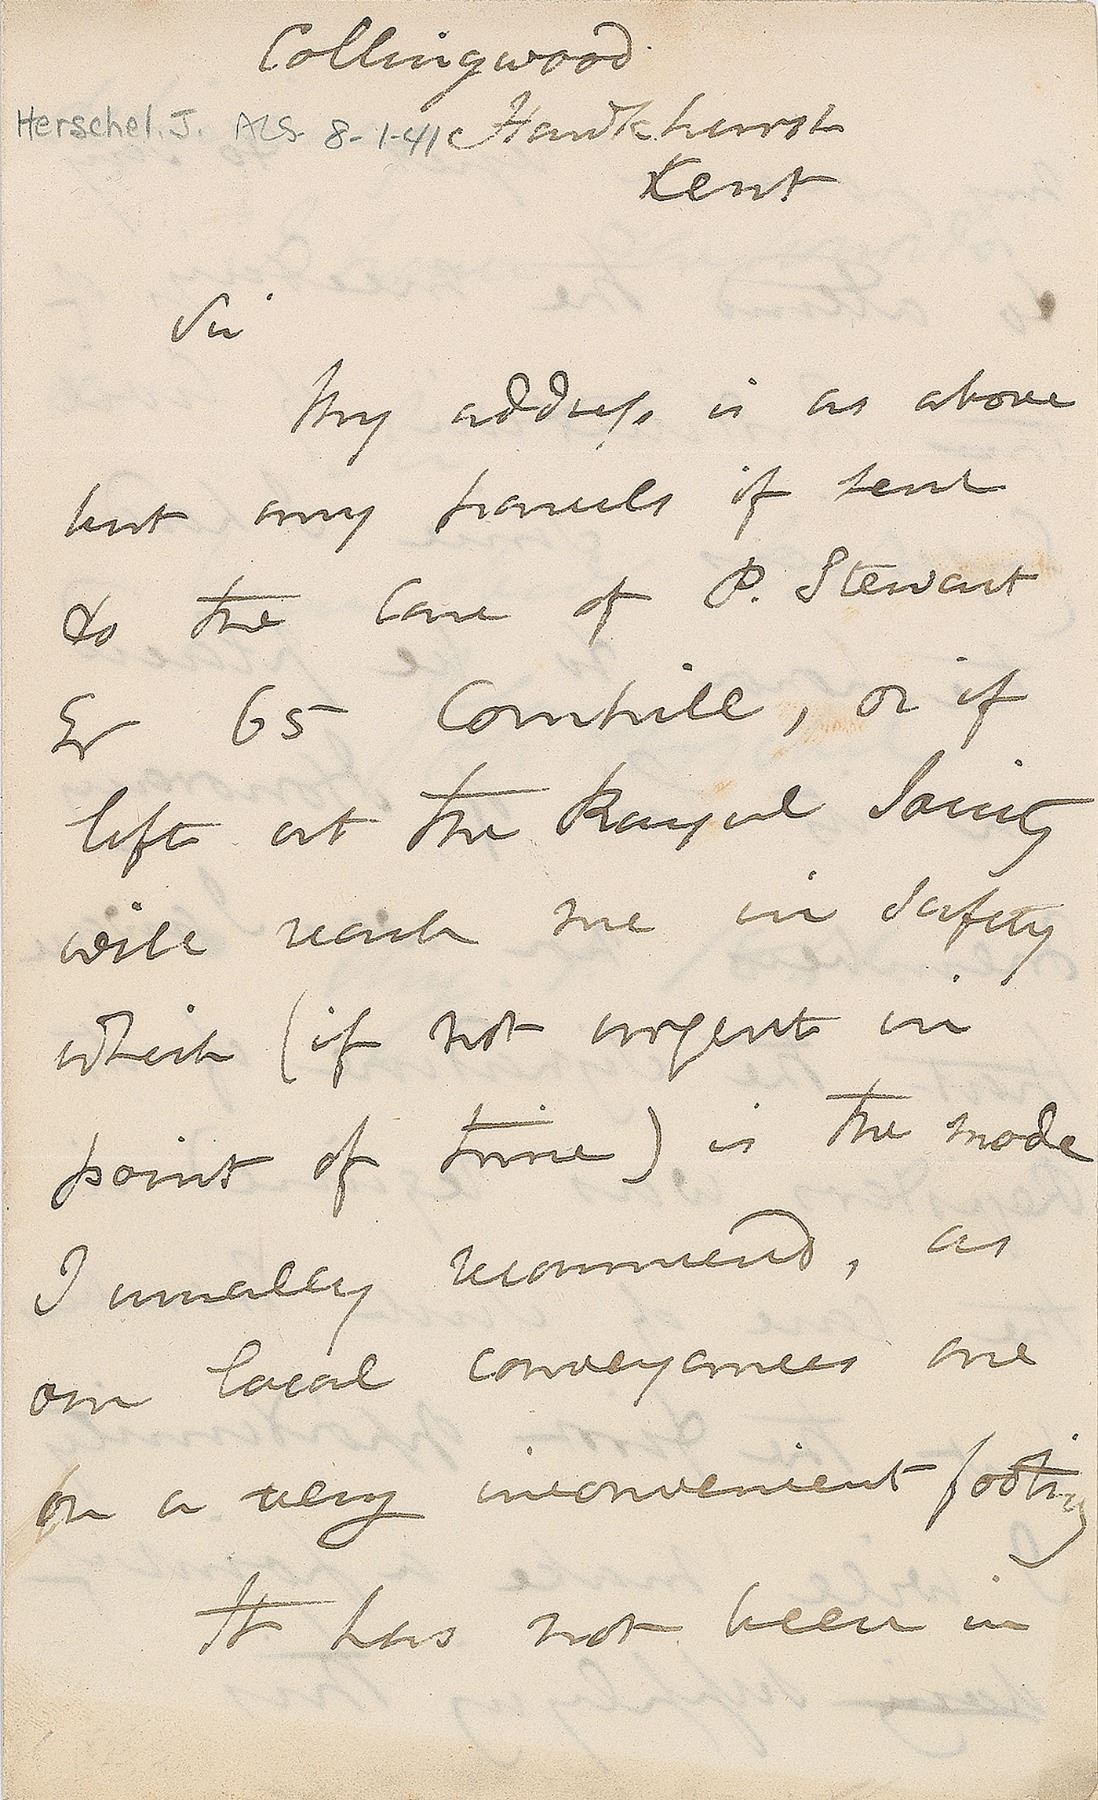 Collingwood
Herschel. J. ALS 8-1-41
Hawkhurst
Kent
Sir
My address is as above
but any parcels if sent
to the care of P. Stewart
Er 65 Cornhill, or if
left at the Royal Society
will reach me in safety
which (if not urgent in
point of time) is the mode
I usually recommend, as
our local conveyances are
on a very inconvenient footing
It has not been in